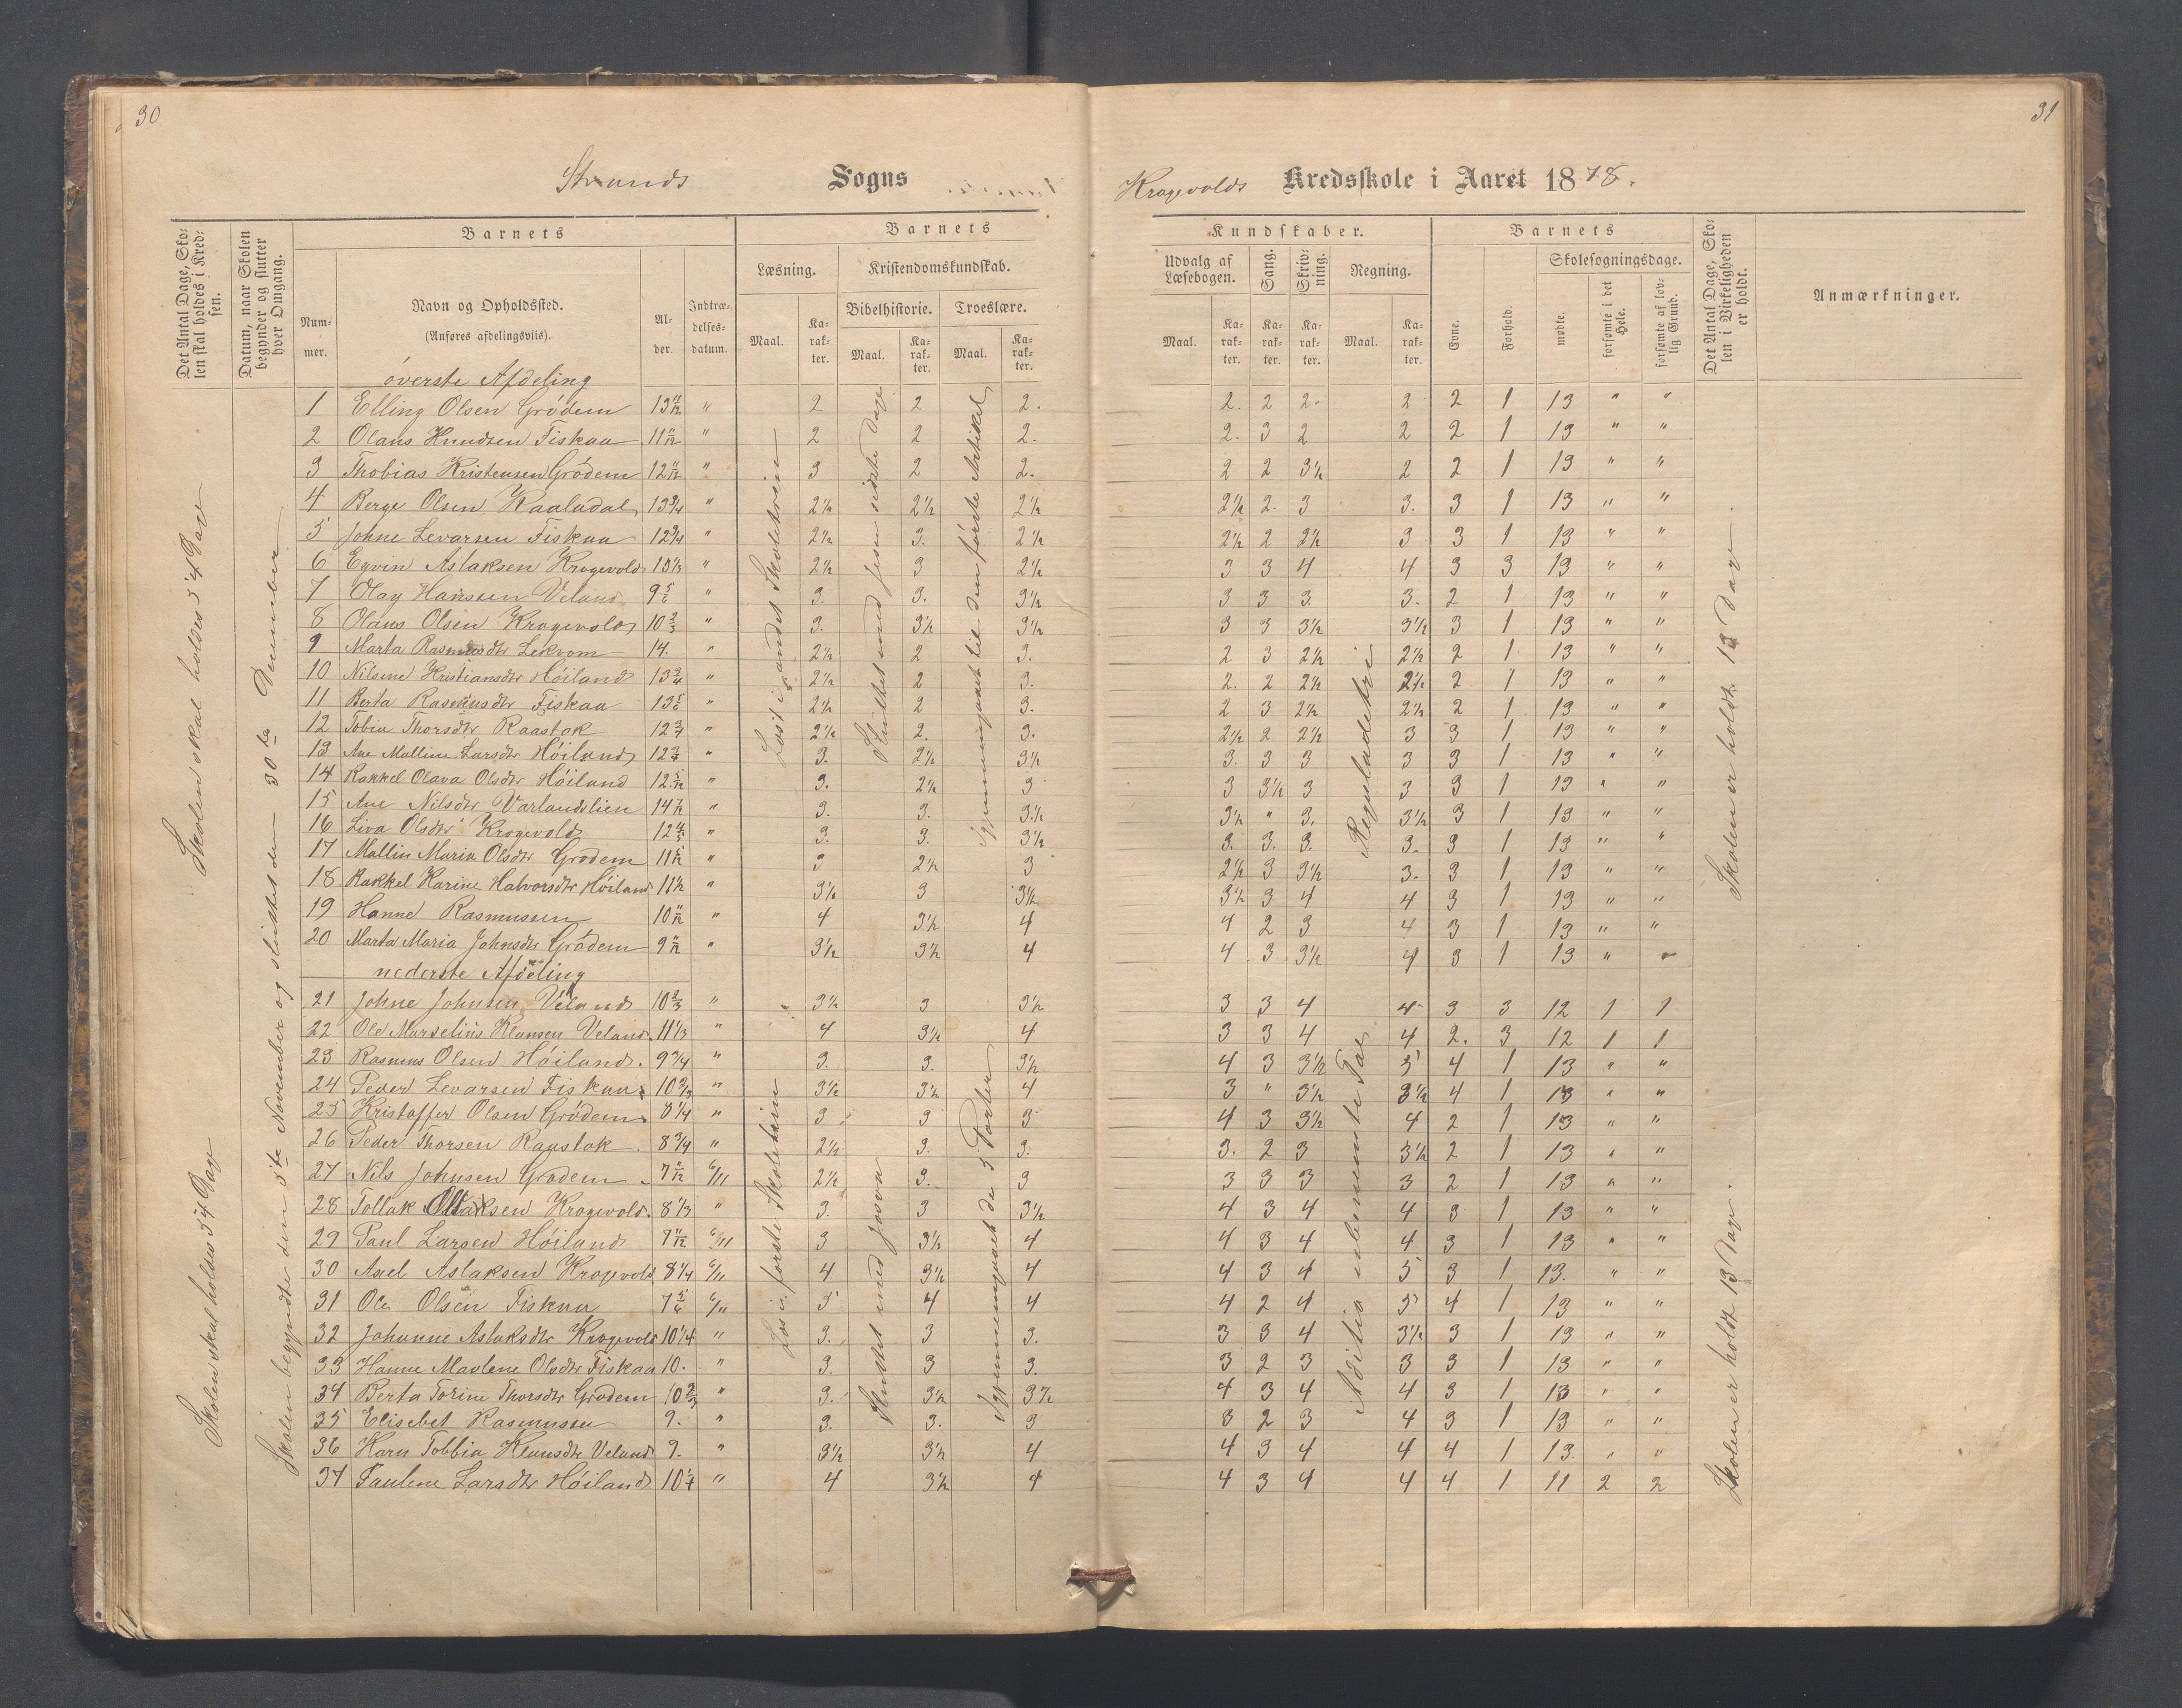 30
Strands Sogns
Det Antal Dage, Sko-
len skal holdes i Kred-
sen.
Datum, naar Skolen
begynder og slutter
hver Omgang.
Barnets
Num-
mer.
Navn og Opholdssted.
(Anføres afdelingsviis).
Al-
der.
Indtræ-
delses-
datum.
Barnets
Læsning.
Kristendomskundskab.
Bibelhistorie. Troeslære.
Maal. Ka-
rak-
ter. Maal. Ka-
rak-
ter. Maal. Ka-
rak-
ter.
Skolen skal holdes 54 Dage
Skolen skal holdes 54 Dage
Skolen begyndte den 5te November og sluttet den 30te
Læst i andet Skoletrin
Læs i første Skoletrin
Sluttet med Josva
øverste Afdeling
1 Elling Olsen Grødem 13 11/12 " 2 2 2.
2 Olaus Knudsen Fiskaa 11 11/12 " 2 2 2.
3 Thobias Kristensen Grødem 12 11/12 " 3 2 2.
4 Berge Olsen Kaaladal 13 3/4 " 2½ 2½ 2½
5 Johne Levarsen Fiskaa 12 3/4 " 2½ 3. 2½
6 Egvin Aslaksen Krogevold 13 1/3 " 2½ 3 2½
7 Olay Hanssen Veland 9 5/6 " 3. 3. 3½
8 Olaus Olsen Krogevold 10 2/3 " 3. 3½ 3½
9 Marta Rasmusdtr Lekvom 14. " 2½ 2 3.
10 Nilsine Kristiansdtr Höiland 13 3/4 " 2½ 2 3.
11 Berta Rasmusdtr Fiskaa 13 5/6 " 2½ 2 3.
12 Tobia Thorsdtr Raastok 12 3/4 " 2½ 2. 3.
13 Ane Malline Larsdtr Höiland 12 3/4 " 3. 2½ 3½
14 Rakkel Olava Olsdtr Höiland 12 5/12 " 3. 2½ 3
15 Ane Nilsdtr Varlandslien 14 ½ " 3. 3. 3.½
16 Liva Olsdtr Krogevold 12 " 3. 3. 3½
17 Mallin Maria Olsdtr Grødem 11 5/12 " 3 2½ 3
18 Rakkel Karine Halvorsdtr Höiland 11½ " 3½ 3 3½
19 Hanne Rasmussen 10 11/12 " 4 3½ 4
20 Marta Maria Johnsdtr Grødem 9 11/12 " 3½ 3½ 4
nederste Afdeling
21 Johne Johnsen Veland 10 2/3 " 3½ 3 3½
22 Ole Marselius Klausen Veland. 11 1/3 " 4 3½ 4
23 Rasmus Olsen Höiland. 9 3/4 " 3. 3. 3½
24 Peder Levarsen Fiskaa 10 2/3 " 3½ 3½ 4
25 Kristoffer Olsen Grødem 8 1/4 " 3 3 3
26 Peder Thorsen Raustok. 8 3/4 " 2½ 3. 3.
27 Nils Johnsen Grødem 7 11/12 6/11 2½ 3. 3
28 Tollak Aslaksen Krogevold. 8 1/3 " 3. 3 3½
29 Paul Larsen Höiland 7 11/12 6/11 3 3½ 4
30 Axel Aslaksen Krogevold 8 1/4 6/11 4 3½ 4
31 Ole Olsen Fiskaa 7 5/6 6/11 5 4 4
32 Johanne Aslaksdtr Krogevold 10 1/4 " 3. 3 3.
33 Hanne Mavlene Olsdtr Fiskaa 10. " 3. 3 3.
34 Berta Torine Thorsdtr Grødem 10 2/3 " 3. 3½ 3½
35 Elisebet Rasmussen 9. " 3. 3. 3
36 Karn Tobbia Klausdtr Veland 9. " 3½ 3½ 4
37 Pauline Larsdtr Höiland 10 1/4 " 4 3½ 4
31
Krogevolds Kredsskole i Aaret 1878.
Kundskaber.
Udvalg af
Læsebogen.
Sang.
Skriv-
ning.
Regning.
Maal. Ka-
rak-
ter. Ka-
rak-
ter. Ka-
rak-
ter. Maal. Ka-
rak-
ter.
Barnets
Evne.
Forhold.
Skolesøgningsdage.
mødte.
forsømte i det
Hele.
forsømte af lov-
lig Grund.
Det Antal Dage, Sko-
len i Virkeligheden
er holdt.
Anmærkninger.
Reguladetri
Adition ubenevnte Tal
Skolen er holdt 13 Dage.
Skolen er holdt 13 Dage.
2. 2 2. 2 2 1 13 " "
2. 3 2 2 2 1 13 " "
2 2 3½ 2 2 1 13 " "
2½ 2. 3 3. 3 1 13 " "
2½ 2 2½ 3 3 1 13 " "
3 3 4 4 3 3 13 " "
3 3 3. 3. 2 1 13 " "
3 3 3½ 3½ 3 1 13 " "
2 3 2½ 2½ 2 1 13 " "
2. 2 2½ 2½ 2 1 13 " "
2 3 2½ 2½ 2 1 13 " "
2½ 2 2½ 3 3 1 13 " "
3. 3 3 3 3 1 13 " "
3 3½ 3 3 3 1 13 " "
3½ " 3. 3½ 3 1 13 " "
3. 3. 3. 3. 3 1 13 " "
2½ 3 3½ 3. 3 1 13 " "
3½ 3 4 4 3 1 13 " "
4 2 3 4 3 1 13 " "
4 3 3½ 4 3 1 13 " "
3 3 4 4 3 3 12 1 1
3 3 4 4 2. 3 12 1 1
4 3 3½ 5 4 1 13 " "
3 " 3½ 3½ 4 1 13 " "
4 3 3½ 4 2 1 13 " "
3. 2 3 3½ 2 1 13 " "
3 3 3 3 2 1 13 " "
4 3 4 4 3 1 13 " "
4 3 4 4 3 1 13 " "
4 3 4 5 3 1 13. " "
4 2 4 5 4 1 13 " "
3 3 4 3½ 3 1 13 " "
3 2 3 3 3 1 13 " "
4 3 4 4 3 1 13 " "
3 2 3 4 3 1 13 " "
4 3 4 4 4 1 13. " "
4 3 4 4 4 1 11 2 2